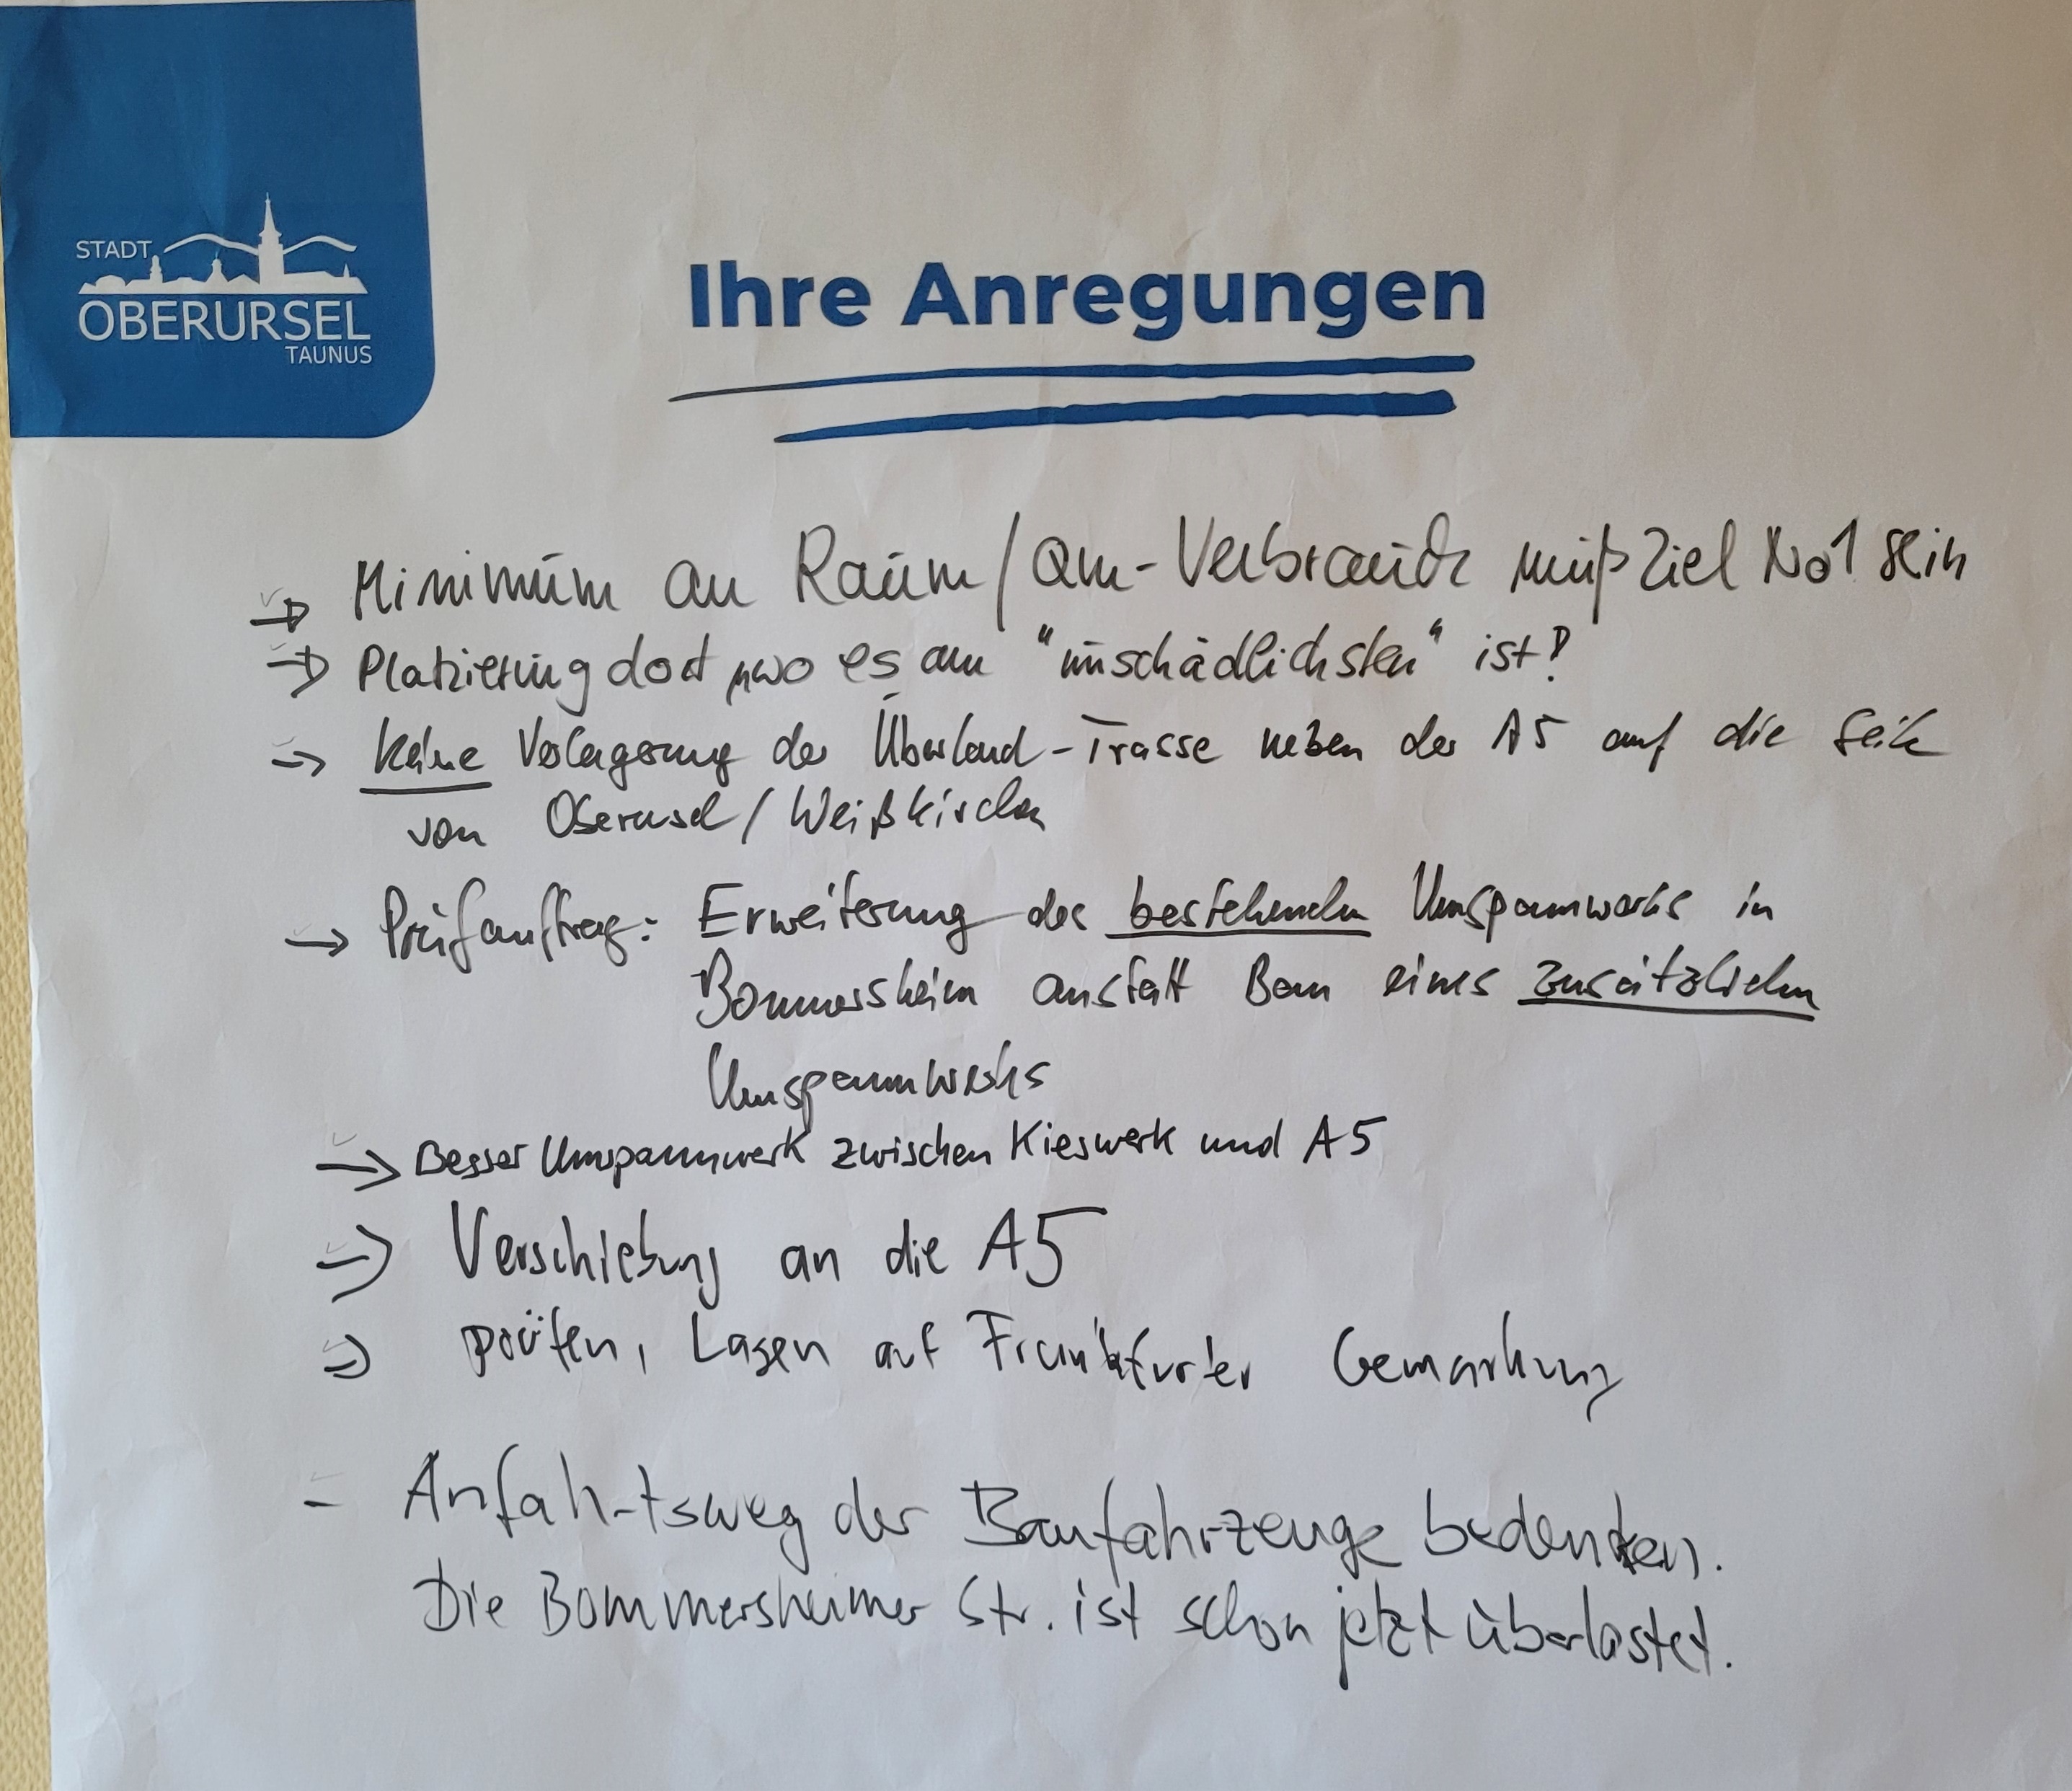 STADT
OBERURSEL
TAUNUS
Ihre Anregungen
=> Minimum an Raum/Qm-Verbrauch muß Ziel No1 sein
=> Platzierung dort, wo es am "unschädlichsten" ist!
=> keine Verlagerung der Überland-Trasse neben der A5 auf die Seite
von Oberursel/Weißkirchen
-> Prüfauftrag: Erweiterung des bestehenden Umspannwerks in
Bommersheim anstatt Bau eines zusätzlichen
Umspannwerks
=> Besser Umspannwerk zwischen Kieswerk und A5
=> Verschiebung an die A5
=> prüfen, Lagen auf Frankfurter Gemarkung
- Anfahrtsweg der Baufahrzeuge bedenken.
Die Bommersheimer Str. ist schon jetzt überlastet.